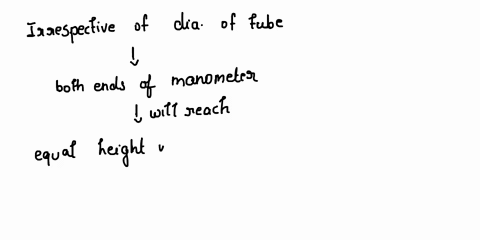 Irrespective of dia. of tube
↓
both ends of manometer
↓ will reach
equal height